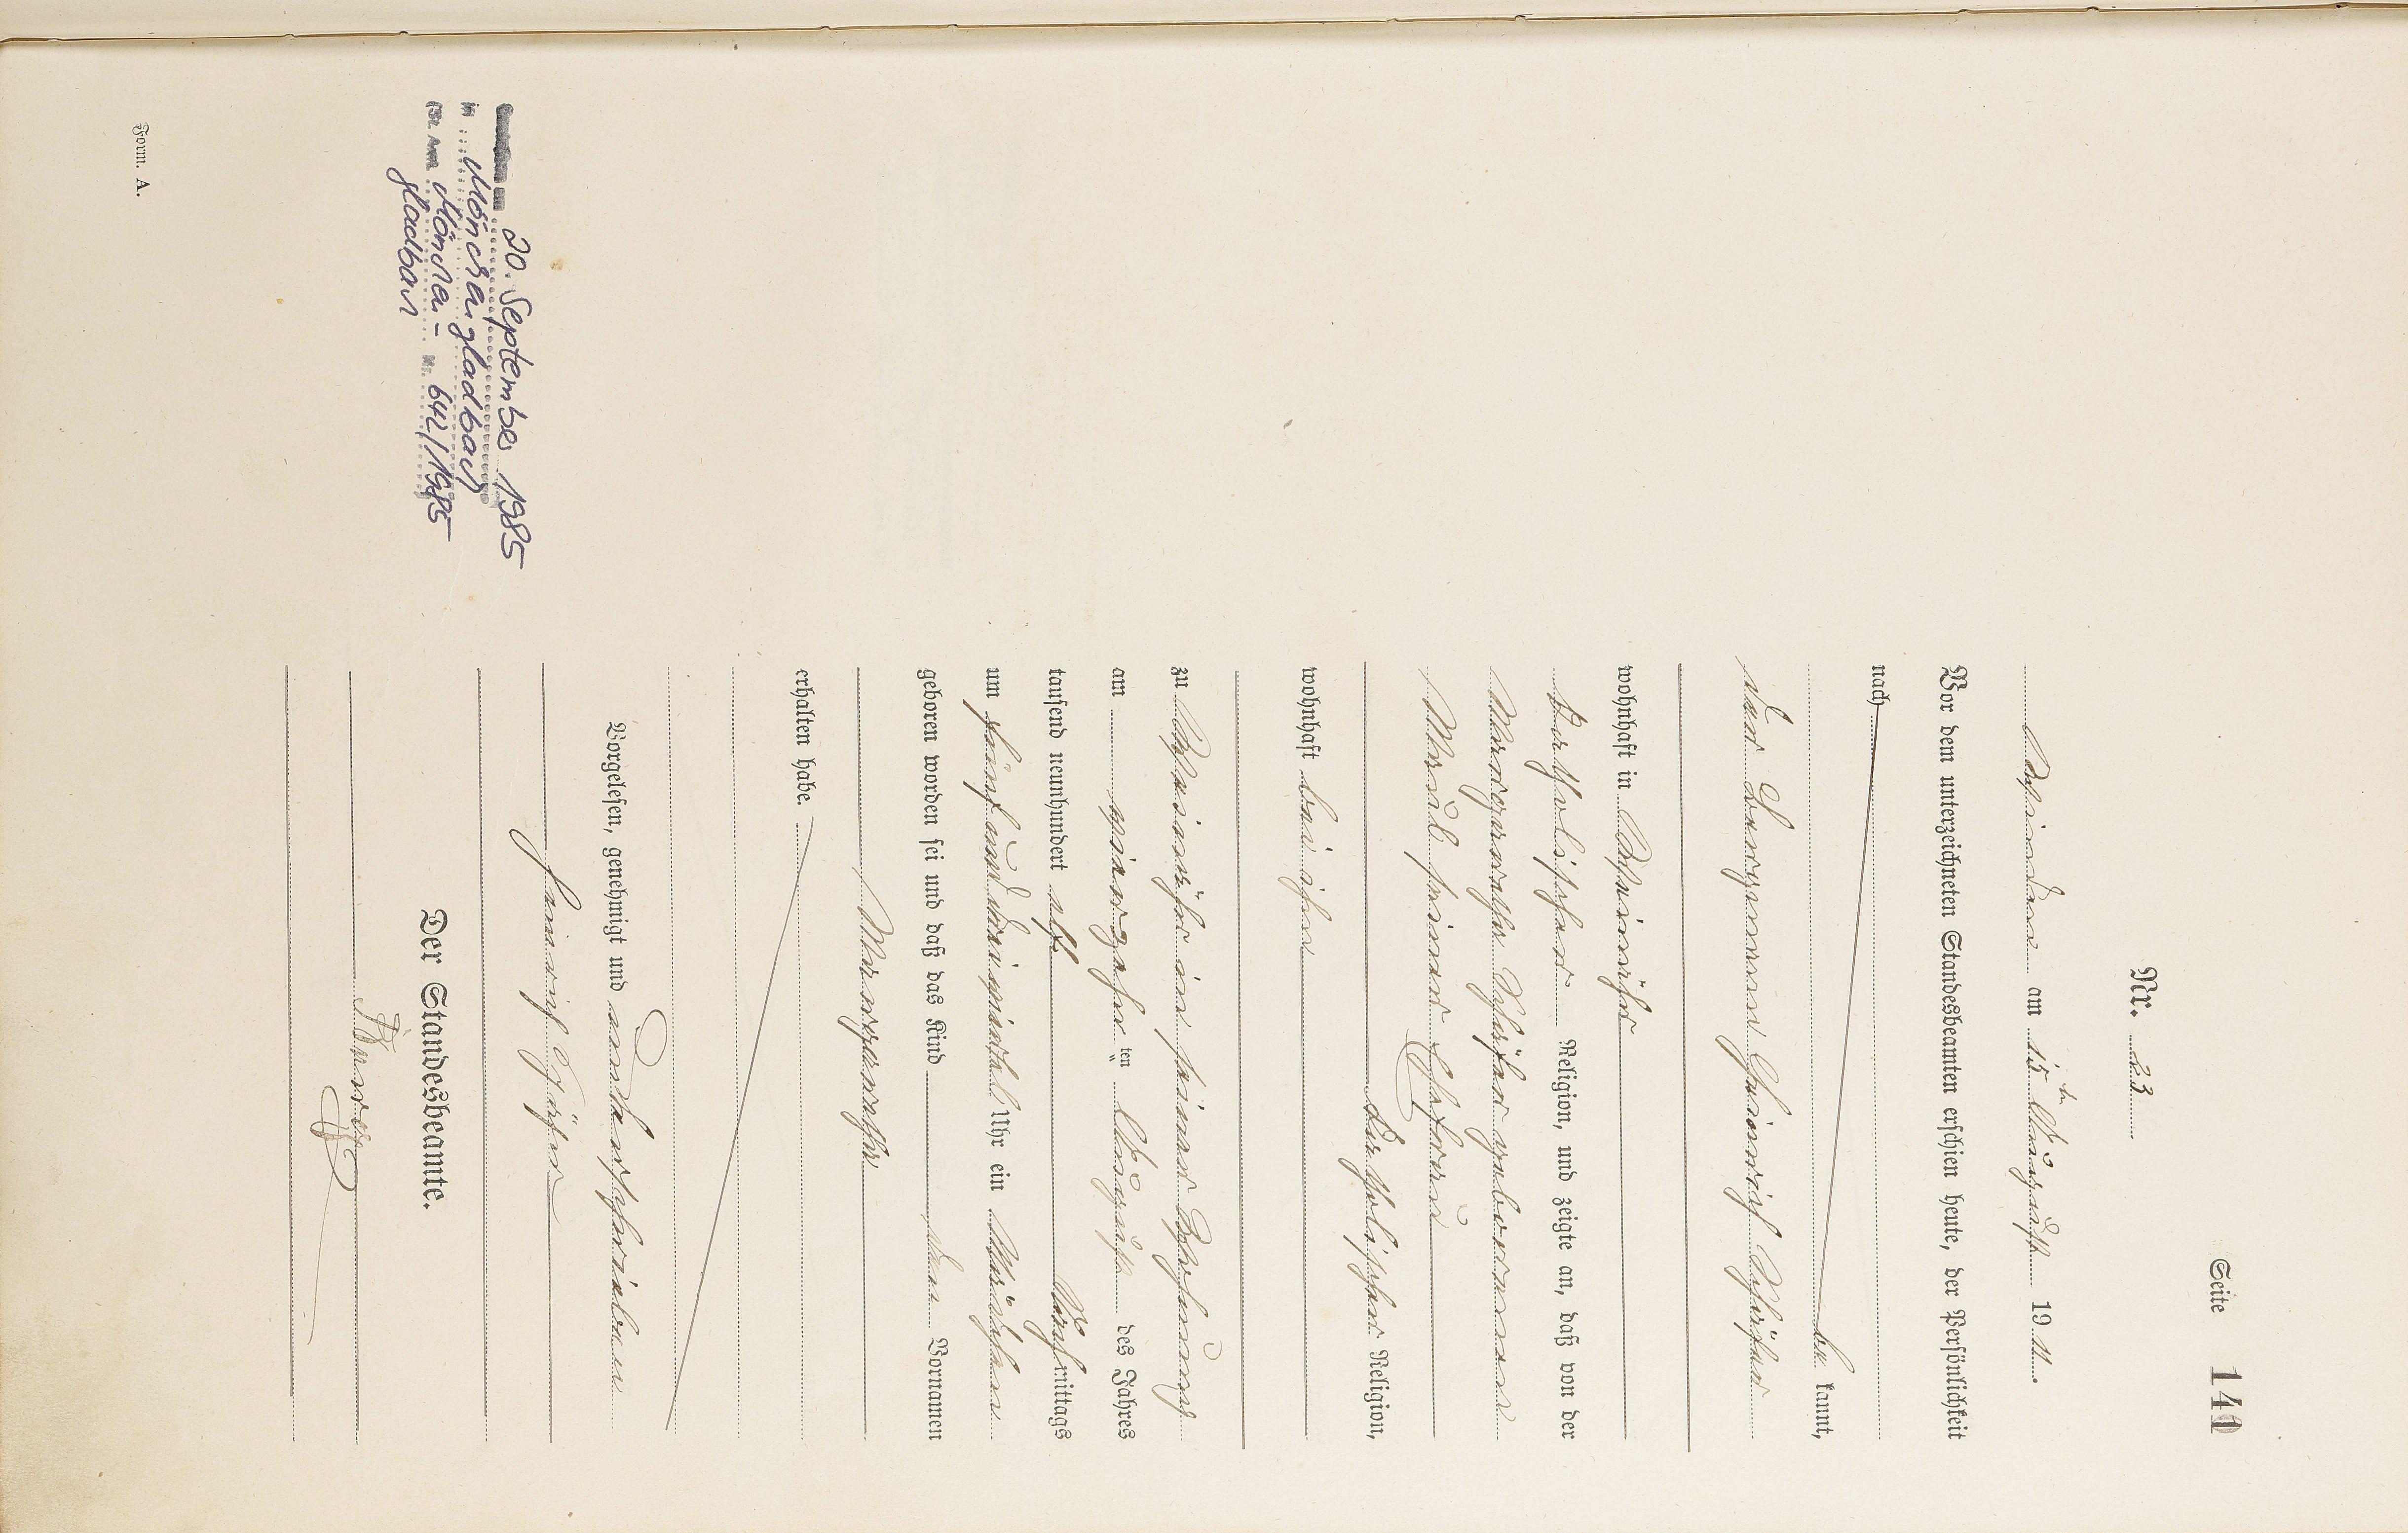 Seite 14
Nr. 23
Winden am 15ten August 1911.
Vor dem unterzeichneten Standesbeamten erschien heute, der Persönlichkeit
nach
be kannt,
der Bergmann Heinrich Schäfer
wohnhaft in Weinähr
katholischer Religion, und zeigte an, daß von der
Margarethe Schäfer geborenen
Maul seiner Ehefrau
katholischer Religion,
wohnhaft bei ihm
zu Weinähr in seiner Wohnung
am vierzehnten August des Jahres
tausend neunhundert elf Nachmittags
um fünf und drei viertel Uhr ein Mädchen
geboren worden sei und daß das Kind den Vornamen
Margarethe
erhalten habe.
Vorgelesen, genehmigt und unterschrieben
Heinrich Schäfer
Der Standesbeamte.
Gestorben am 20. September 1985
in Mönchengladbach
(St. Amt Mönchen- Nr. 642/1985
gladbach
Form. A.